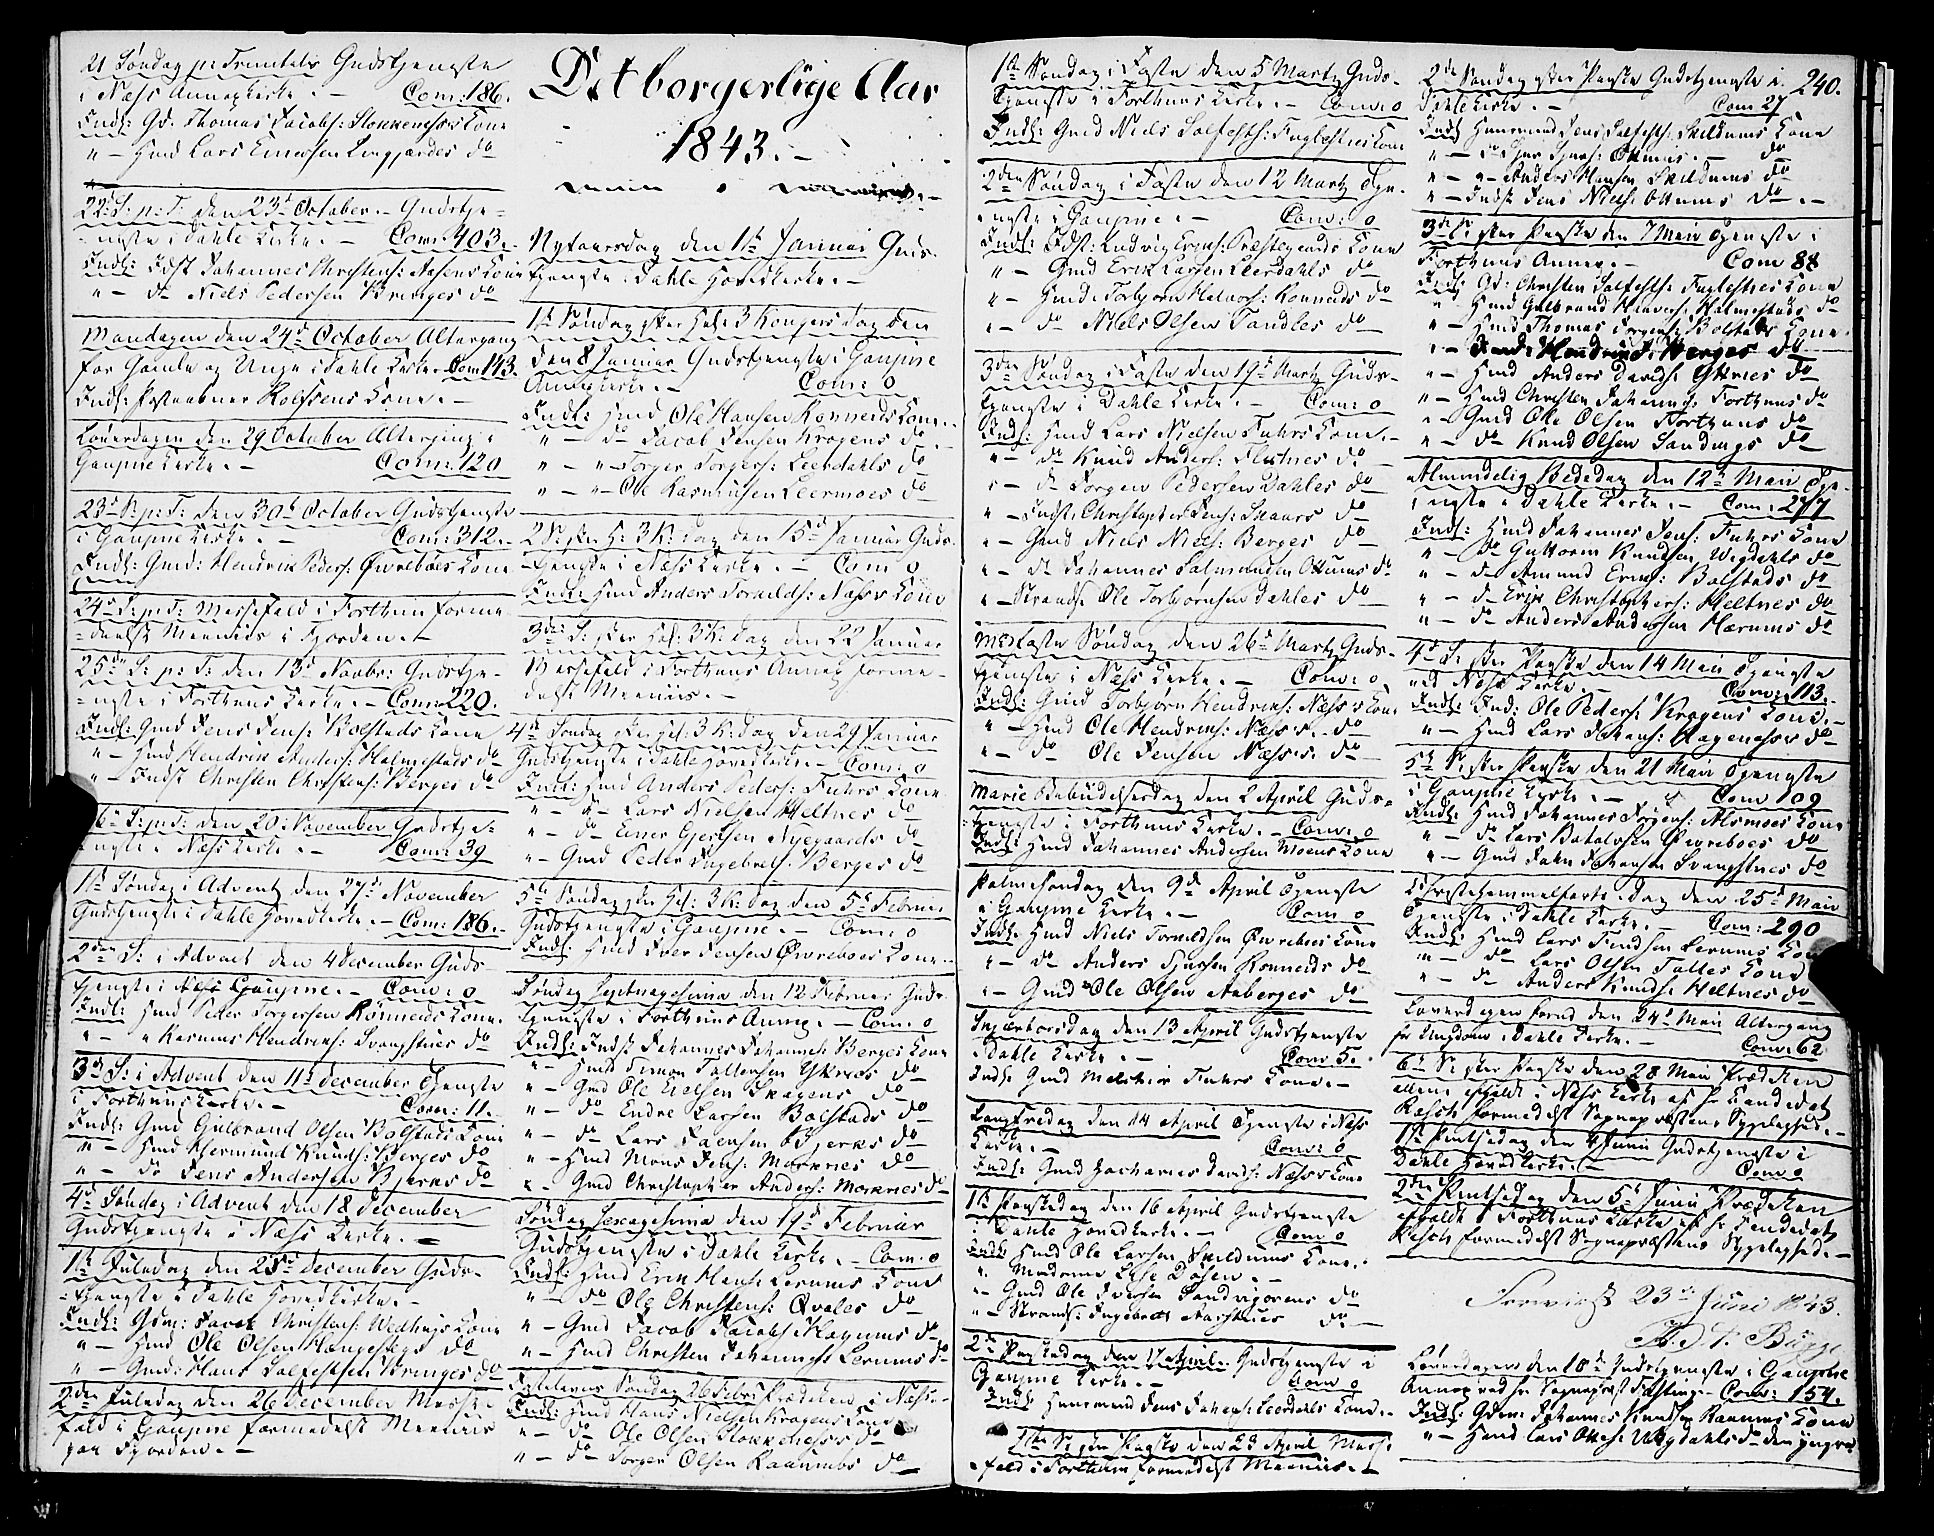 21 Søndag p: Trinitatis Gudstjeneste
i Næss Annexkirke. – Com: 186.
Indl: Gd. Thomas Jacobs: Stokkenæss Kone
" – Hmd Lars Einersen Lingjærdes do
22de S: p: T: den 23de October. – Gudstje-
neste i Dahle Kirke. – Com: 403.
Indl: Idst Johannes Christens: Aasens Kone
" – do Niels Pedersen Bringes do
Mandagen den 24de October Altergang
for Gamle og Unge i Dahle Kirke. Com 143.
Indl: Postaabner Rolfsens Kone. –
Løverdagen den 29 October Altergang i
Gaupne Kirke. – Com: 120
23de S: p: T: den 30te October Gudstjeneste
i Gaupne Kirke. – Com: 312. –
Indl: Gmd: Hendrik Peders: Øvrebøes Kone
24de S: p: T: Messefald i Forthun forme-
delst Meenis i Fjorden. –
25de S: p: T: den 13de Novbr: Gudstje-
neste i Forthuns Kirke. – Com: 220.
Indl: Gmd Jens Jens: Bolstads Kone
" – Hmd Hendrik Anders: Holmestads do
" – Indst Christen Christens: Berges do
26de S: p: T: den 20 November Gudstje-
neste i Næss Kirke. – Com: 39
1ste Søndag i Advent den 27de November
Gudstjeneste i Dahle Hovedkirke. – Com: 186. –
2den S: i Advent den 4 December Guds-
tjeneste i Gaupne. – Com: 0
Indl: Hmd Peder Torgersen Rønneids Kone.
" – " Rasmus Hendriks: Svangstues do
3de S: i Advent den 11te December Tjeneste
i Forthuns Kirke. – Com: 11.
Indl: Gmd Gulbrand Olsen Bolstads Kone
" – Hmd Hermund Knuds: Berges do
" – do Jens Andersen Bjerks do
4de Søndag i Advent den 18 December
Gudstjeneste i Næss Kirke. –
1ste Juledag den 25de December Guds-
tjeneste i Dahle Hovedkirke. –
Indl: Gdm: Jacob Christens: Kone
" – Hmd Ole Olsen Haugestegs do
" – Gmd: Hans Salfestsen Bringes do
2den Juledag den 26 December Messe-
fald i Gaupne formedelst Meenis
paa Fjorden. –
Det borgerlige Aar
1843. –
Nytaarsdag den 1ste Januar Guds-
tjeneste i Dahle Hovedkirke. –
1ste Søndag efter Hel: 3 Kongers Dag den
den 8 Januar Gudstjeneste i Gaupne
Annexkirke. – Com: 0
Indl: Hmd Ole Hansen Rønneids Kone. –
" – do Jacob Jensen Kragens do
" – " Torger Torgers: Leerdahls do
" – " Ole Rasmusen Leermoes do
2 S: efter H: 3 K: Dag den 15de Januar Guds-
tjeneste i Næss Kirke. – Com 0
Indl: Hmd Anders Tornilds: Næss Kone
3de S: efter Hel: 3 K: Dag den 22 Januar
Messefald i Forthuns Annex forme-
delst Meenis. –
4de Søndag efter Hel: 3 K: Dag den 29 Januar
Gudstjeneste i Dahle Hovedkirke. – Com: 0
Indl: Hmd Anders Peders: Fuhrs Kone
" – " Lars Nielsen Heltnes do
" – do Einer Gjertsen Nyegaards do
" – Gmd Peder Ingebrets: Berges do
5te Søndag efter Hel: 3 K: Dag den 5te Februar
Gudstjeneste i Gaupne. – Com: 0
Indl: Hmd Iver Jensen Øvrebøes Kone. –
Søndag Septuagesima den 12 Februar Guds-
tjeneste i Forthuns Annex. – Com: 0
Indl: Indst Johannes Johannes: Berges Kone
" – Hmd Simon Tollersen Ytrnæs do
" – Gmd Ole Eielsen Kragens do
" – do Endre Larsen Bolstads do
" – do Lars Bjerks do
" – Hmd Mons Jens: Morknes do
" – Gmd Christopher Anders: Morknes do
Søndag Sexagesima den 19de Februar
Gudstjeneste i Dahle Kirke. – Com: 0
Indl: Hmd Erik Hans: Lerums Kone
" – do Ole Christens: Qvales do
" – Gmd Jacob Jacobs: Haugums do
" – Hmd Christen Johannes: Lerums do
Fastelavns Søndag 26 Febr: Prædiken i Næss. –
Indl: Hmd Hans Nielsen Kragens Kone
" – do Ole Olsen Stokkenæss do
" – do Torger Olsen Raaumbs do
1ste Søndag i Faste den 5 Martz Guds-
tjeneste i Forthuns Kirke. – Com: 0
Indl: Gmd Niels Salfests: Fuglesteens Kone
2den Søndag i Faste den 12 Martz Tje-
neste i Gaupne. – Com: 0
Indl: Idst: Ludvig Erens: Præstegaards Kone
" – Gmd Erik Larsen Leerdahls do
" – Hmd: Torbjørn Halvors: Rønneids do
" – do Niels Olsen Tandles do
3de Søndag i Faste den 19de Martz Guds-
tjeneste i Dahle Kirke. – Com: 0
Indl: Hmd Lars Nielsen Fuhrs Kone. –
" – do Knud Anders: Flutnes do
" – do Jørgen Pedersen Dahles do
" – Indst: Christopher Jens: Skaars do
" – Gmd Niels Niels: Berges do
" – do Johannes Salmunden Ottums do
" – Strands: Ole Torbjørnsen Dahles do
Midfaste Søndag den 26de Martz Guds-
tjeneste i Næss Kirke. – Com: 0
Indl: Gmd Torbjørn Hendriks: Næss Kone.
" – Hmd Ole Hendriks: Næss. do
" – do Ole Jensen Næss. do
Marie Bebudelsesdag den 2 April Guds-
tjeneste i Forthuns Kirke. – Com: 0
Indl: Hmd Johannes Andersen Moens Kone
Palmesøndag den 9de April Tjeneste
i Gaupne Kirke. – Com 0
Indl: Hmd Niels Torvildsen Øvrebøes Kone
" – do Anders Sjursen Rønneids do
" – Gmd Ole Olsen Aaberges do
Skjærtorsdag den 13 April Gudstjeneste
i Dahle Kirke. – Com 5. –
Indl: Gmd Melchior Fuhrs Kone. –
Langfredag den 14 April Tjeneste i Næss
Kirke. – Com: 0
Indl: Gmd Zacharias Davids: Næss Kone
1ste Paaskedag den 16 April Gudstjeneste
i Dahle Hovedkirke. – Com 0
Indl: Hmd Ole Larsen Skildnums Kone.
" Madame Døsen. –
" – Gmd Ole Iversen Sandvigørens do
" – Strands: Ingebret Aarstues do –
2de Paaskedag den 17 April. Gudstjeneste i
Gaupne Kirke. – Com 0
Indl: Huusmand Jens Johans: Leerdahls Kone. –
1ste S: efter Paaske den 23 April Messe-
fald i Forthun formedelst Meenis. –
240.
2de Søndag efter Paaske Gudstjeneste i
Dahle Kirke. – Com 27
Indl Huusmand Jens Salfests: Skildnums Kone
" – do Sjur Sjurs: Ottums. – do
" – " – Anders Hansen Skildnums do
" – Indst Jens Niels: Ottums do. –
3de S: efter Paaske den 7 Mai Tjeneste i
Forthuns Annex. – Com 88
Indl: Gd: Christen Salfests: Fuglesteens Kone
" Hmd Gulbrand Halvors: Holmestads do
" – Hmd Thomas Jørgens: Bolstads Kone
" – Hendrik J: Berges do
" – Hmd Anders Davids: Ytrnes do
" – Hmd Christen Johannes: Forthuns do
" – Gmd Ole Olsen Forthuns do
" – do Knud Olsen Sandvigs do
Almindelig Bededag den 12te Mai Tje-
neste i Dahle Kirke. – Com: 277
Indl: Hmd Johannes Jens: Fuhrs Kone
" – do Guttorm Knudsen Wigdahls do
" – do Amund Erens: Bolstads do
" – do Erik Christophers: Heltnes do
" – do Anders Andersen Hærums do
4de S: efter Paaske den 14 Mai Tjeneste
ved Næss Kirke. – Com: 113.
Indl: Ind: Ole Peders: Kragens Kone. –
" – Hmd Lars Johans: Hagenæss do
5te S: efter Paaske den 21 Mai Tjeneste
i Gaupne Kirke. – Com 109
Indl: Hmd Johannes Jørgens: Alsmoes Kone
" – do Lars Botolvsen Øvrebøes do
" – Gmd John Johansen Svangstues do
Christi Himmelfarts Dag den 25de Mai
Tjeneste i Dahle Kirke. – Com: 290
Indl: Hmd Lars Knudsen Lerums Kone
" – do Lars Olsen Talles Kone
" – do Anders Knuds: Heltnes do
Løverdagen forud den 24de Mai Altergang
for Ungdom i Dahle Kirke. – Com: 62
6te S: efter Paaske den 28 Mai Prædiken
allene i Næss Kirke af Hr Candidat
Rasch formedelst Sognepræstens Sygelighed. –
1ste Pintsedag den 4 Juni Gudstjeneste i
Dahle Hovedkirke. – Com 0
2den Pintsedag den 5te Juni Prædiken
i Forthuns Kirke af Hr Candidat
Rasch formedelst Sognepræstens Sygelighed. –
23de Juni 1843.
Løverdagen den 10de Gudstjeneste i Gaupne
Annex ved Hr Sognepræst – Com: 154.
Indl: Gdm: Johannes Knudsen Raaums Kone
" – Hmd Lars Ottes: Wigdahls do den yngre